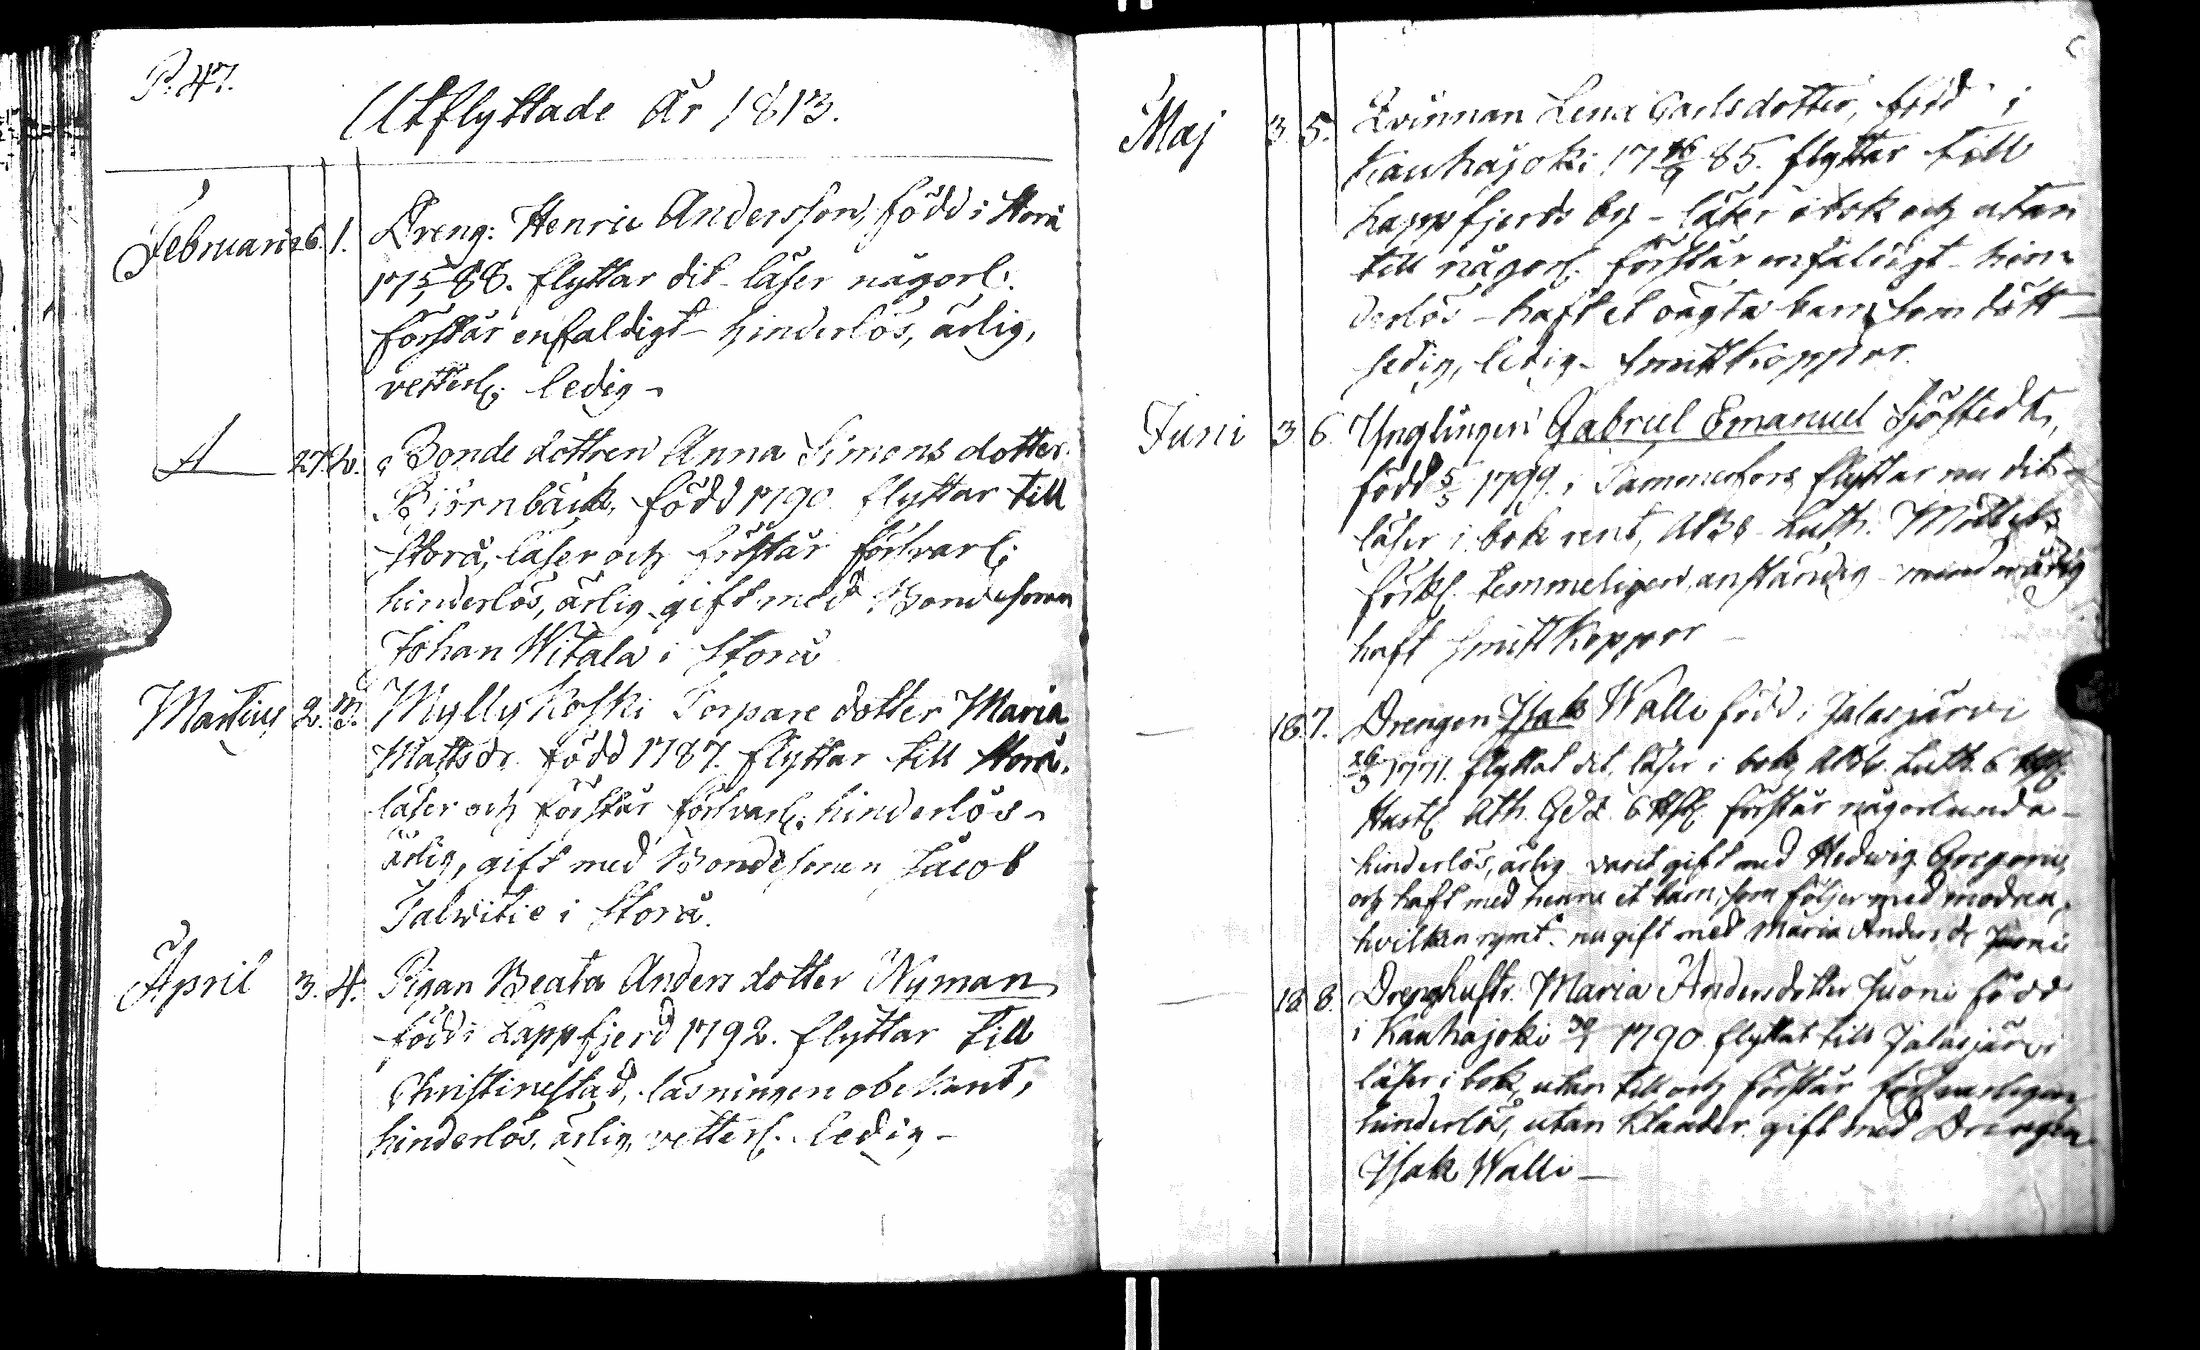 P. 47.
Utflyttade År 1813.
Februarii 26. 1. Dreng: Henric Andersson, född i Storå
17 5/1 88. flyttar dit - läser någorl.
förstår enfaldigt - hinderlös, ärlig,
vetterl. ledig -
27. 2. Bonde dottren Anna Simons dotter
Björnbäck, född 1790. flyttar till
Storå, läser och förstår försvarl:
hinderlös, ärlig gift med Bondesonen
Johan Witala i Storå
Martius 2. 3. Myllykoski Torpare dotter Maria
Mattsdr. född 1787. flyttar till Storå.
läser och förstår försvarl: hinderlös -
ärlig, gift med Bondesonen Jacob
Talwitie i Storå.
April 3. 4. Pigan Beata Anders dotter Nyman
född i Lappfjerd 1792. flyttar till
Christinestad, läsningen obekant,
hinderlös, ärlig, vetterl. ledig -
Maj 3. 5. Qvinnan Lena Carlsdotter, född i
Kauhajoki 17 16/9 85. flyttar till
Lappfjerds by - läser i bok och utan
till någorl. förstår enfaldigt - hin-
derlös - haft et oägta barn som dött -
sedig, ledig - Smittkoppor.
Juni 3 6. Ynglingen Gabriel Emanuel Sjöstedt,
född 5/5 1799. i Tammerfors flyttar nu dit -
läser i bok rent, Luth.
temmeligen, anständig -
haft Smittkoppor -
18. 7. Drengen Isak Walli född i Jalasjärvi
26/3 1771. flyttat dit, läser i bok, Luth. 6
Hustl. Ath. 6 förstår någorlunda -
hinderlös, ärlig varit gift med Hedwig
och haft med henne et barn, som följer med modren,
hvilken rymt. nu gift med Maria Anders dr Juoni
18. 8. Drenghustr. Maria Andersdotter Juoni född
i Kauhajoki 1790 flyttat till Jalasjärvi
läser i bok, utan till och förstår försvarligen
hinderlös, utan klander. gift med Drengen
Isak Walli -